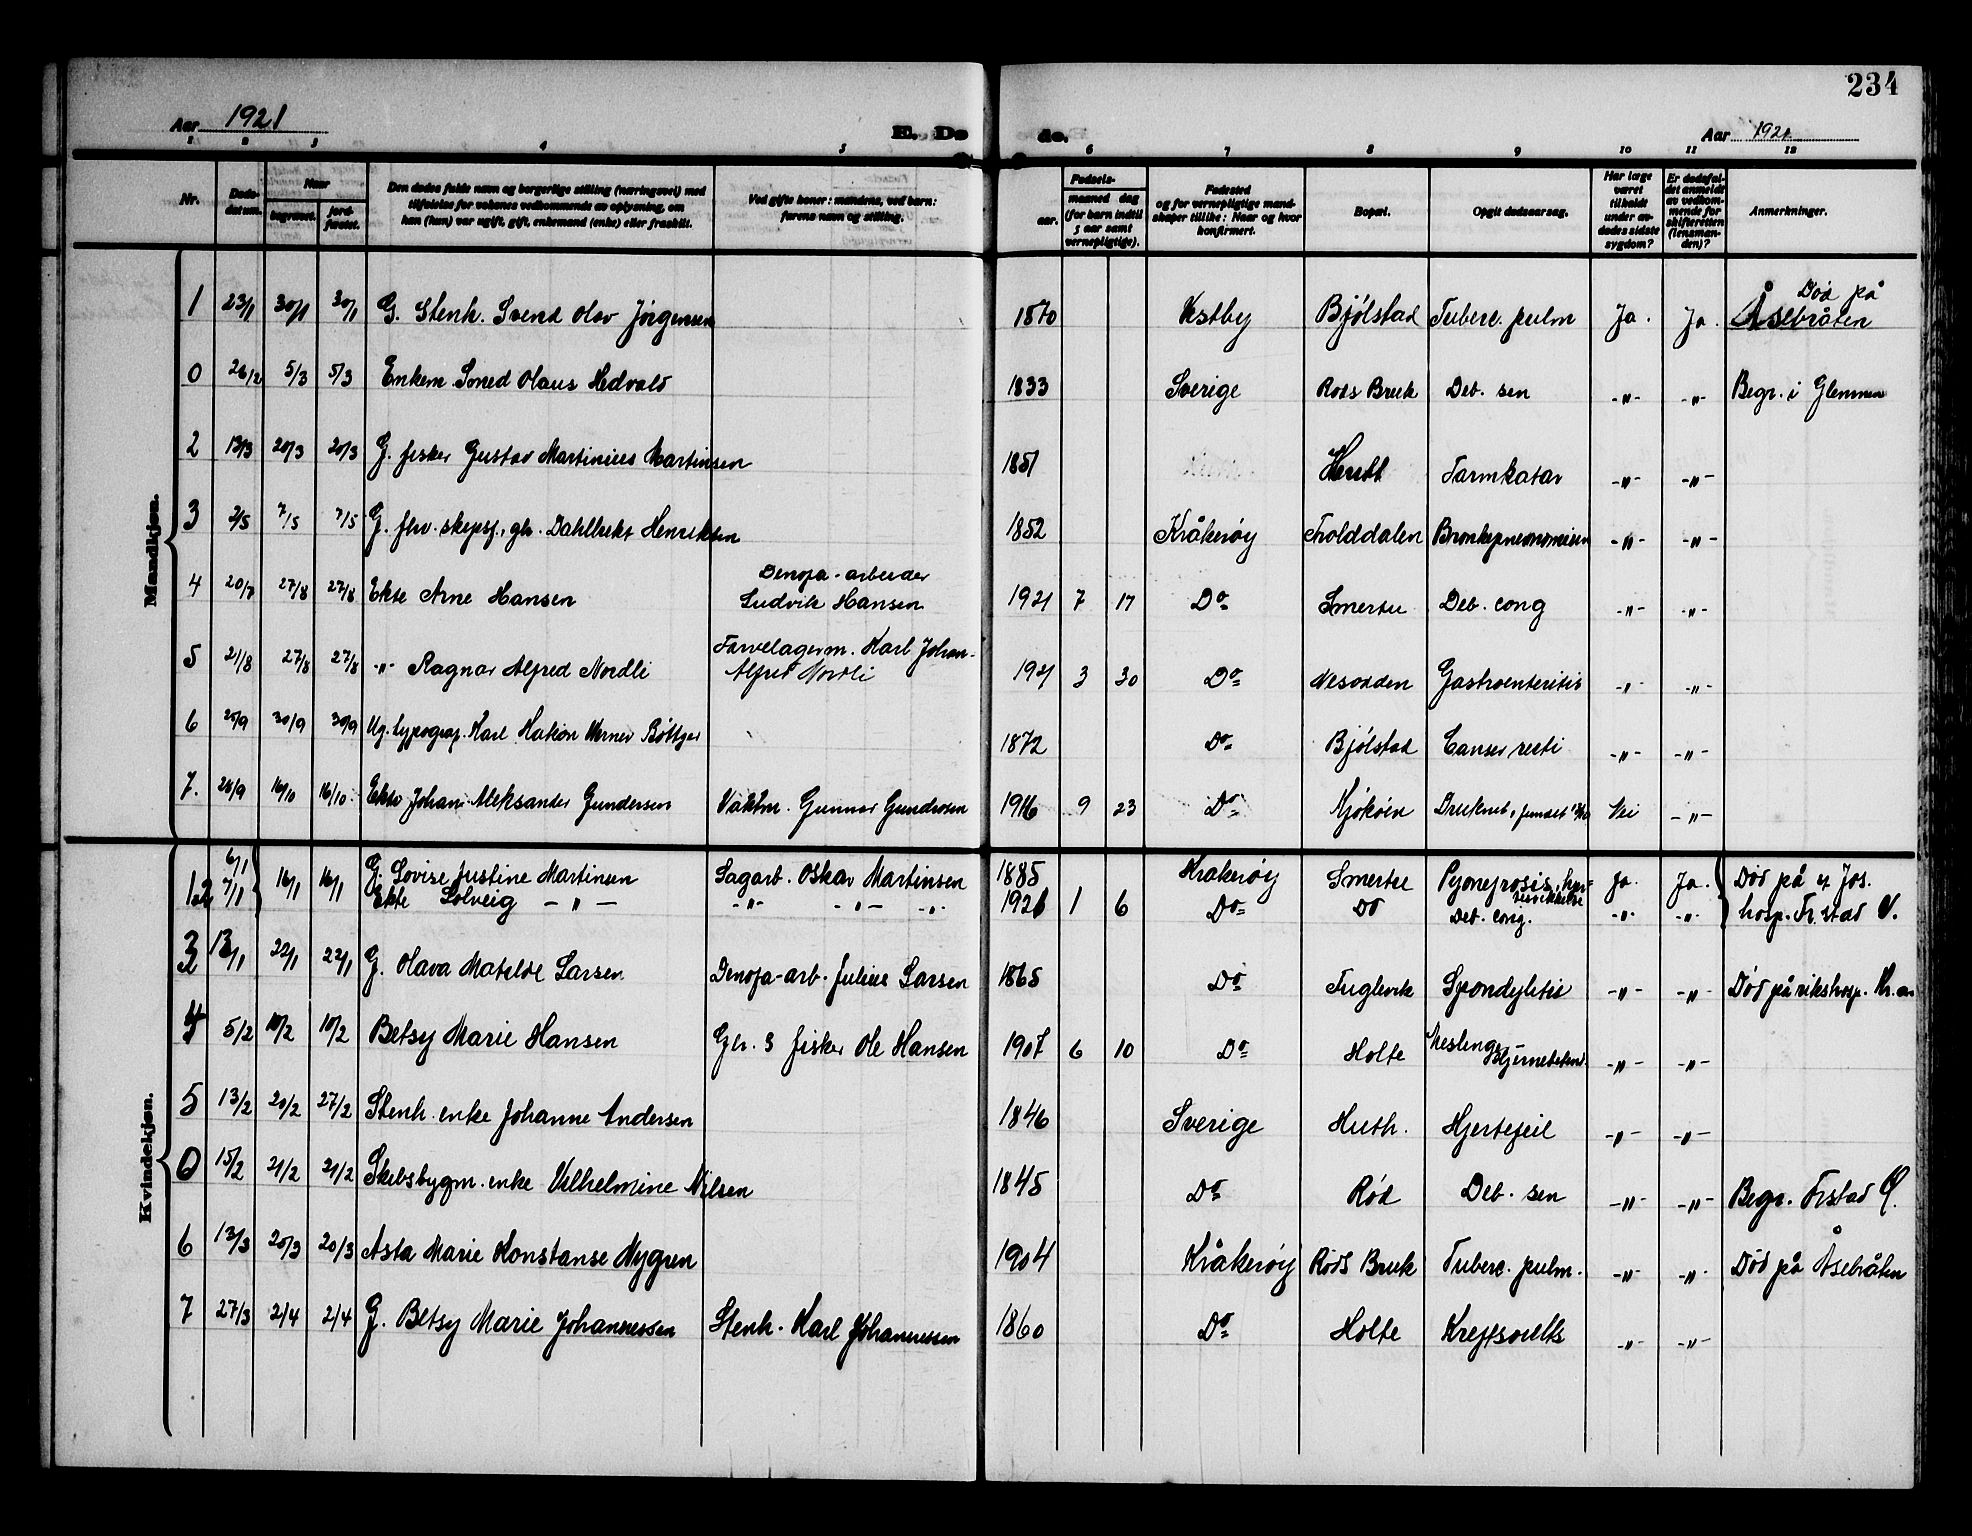 234
Aar 1921
E. Dø
de.
Aar 1921
1 2 3 4 5 6 7 8 9 10 11 12
Nr.
Døds-datum.
Naar
begravet.
jord-fæstet.
Den dødes fulde navn og borgerlige stilling (næringsvei) med
tilføielse for voksnes vedkommende av oplysning, om
han (hun) var ugift, gift, enkemand (enke) eller fraskilt.
Ved gifte koner: mandens, ved barn:
farens navn og stilling.
Fødsels-
aar.
maaned dag
(for barn indtil
5 aar samt
vernepligtige).
Fødested
og for vernepligtige mand-
skaper tillike: Naar og hvor
konfirmert.
Bopæl.
Opgit dødsaarsag.
Har læge
været
tilkaldt
under av-
dødes sidste
sygdom?
Er dødsfal-
det anmeldt
av vedkom-
mende for
skifteretten
(lensman-
den)?
Anmerkninger.
Mandkjøn.
1 23/1 30/1 30/1 G. Stenh. Svend Olav Jørgensen 1870 Vestby Bjølstad Tuberc. pulm Ja. Ja. Død på Åsebråten
0 26/2 5/3 5/3 Enkem. Svned Olaus Hedvald 1833 Sverige Røds Bruk Deb. sen -"- -"- Begr. i Glemmen
2 13/3 20/3 20/3 G. fisker Gustav Martinius Martinsen 1851 Huth Tarmkatar -"- -"-
3 2/5 7/5 7/5 G. fhv. skipsf., gbr. Dahlbert Henriksen 1852 Kråkerøy Trolddalen -"- -"-
4 20/7 27/8 27/8 Ekte Arne Hansen Denofa-arbeider Ludvik Hansen 1921 7 17 Do= Smertu Deb. cong -"- -"-
5 21/8 27/8 27/8 -"- Ragnar Alfred Nordli Farvelagerm. Karl Johan Alfred Nordli 1921 3 30 Do= Nesodden Gastroenteritis -"- -"-
6 25/9 30/9 30/9 Ug. typograf. Karl Hakon Werner Bøttger 1872 Do= Bjølstad Canser recti -"- -"-
7. 28/9 16/10 16/10 Ekte Johan Aleksander Gundersen Vaktm. Gunnar Gundersen 1916 9 23 Do= Kjøkøen Druknet, fundet Nei -"-
Kvindekjøn.
1 6/1 16/1 16/1 G. Lovise Justine Martinsen Sagarb. Oskar Martinsen 1885 Kråkerøy Smertu Pyonefrosis, Ja. Ja. Død på St Jos.
2 7/1 Ekte Solveig -"- -"- -"- -"- 1921 1 6 Do= Do Deb. cong. -"- -"- hosp. Fr.stad V.
3 13/1 22/1 22/1 G. Olava Matilde Larsen Denofa-arb. Julius Larsen 1865 Do Fuglevik Spondylitis -"- -"- Død på rikshosp. Kr.an
4 5/2 10/2 10/2 Betsy Marie Hansen Gbr. & fisker Ole Hansen 1907 6 10 Do= Holte Meslinger- Hjernebeten. -"- -"-
5 13/2 20/2 27/2 Stenh. enke Johanne Andersen 1846 Sverige Huth. Hjertefeil -"- -"-
0 15/2 21/2 21/2 Skibsbygm. enke Vilhelmine Nilsen 1845 Do= Rød Deb. sen -"- -"- Begr. Frstad Ø.
6 13/3 20/3 20/3 Asta Marie Konstanse Nygren 1904 Kråkerøy Røds Bruk Tuberc. pulm. -"- -"- Død på Åsebråten
7 27/3 2/4 2/4 G. Betsy Marie Johannessen Stenh. Karl Johannessen 1860 Do= Holte Kræftsvulst -"- -"-